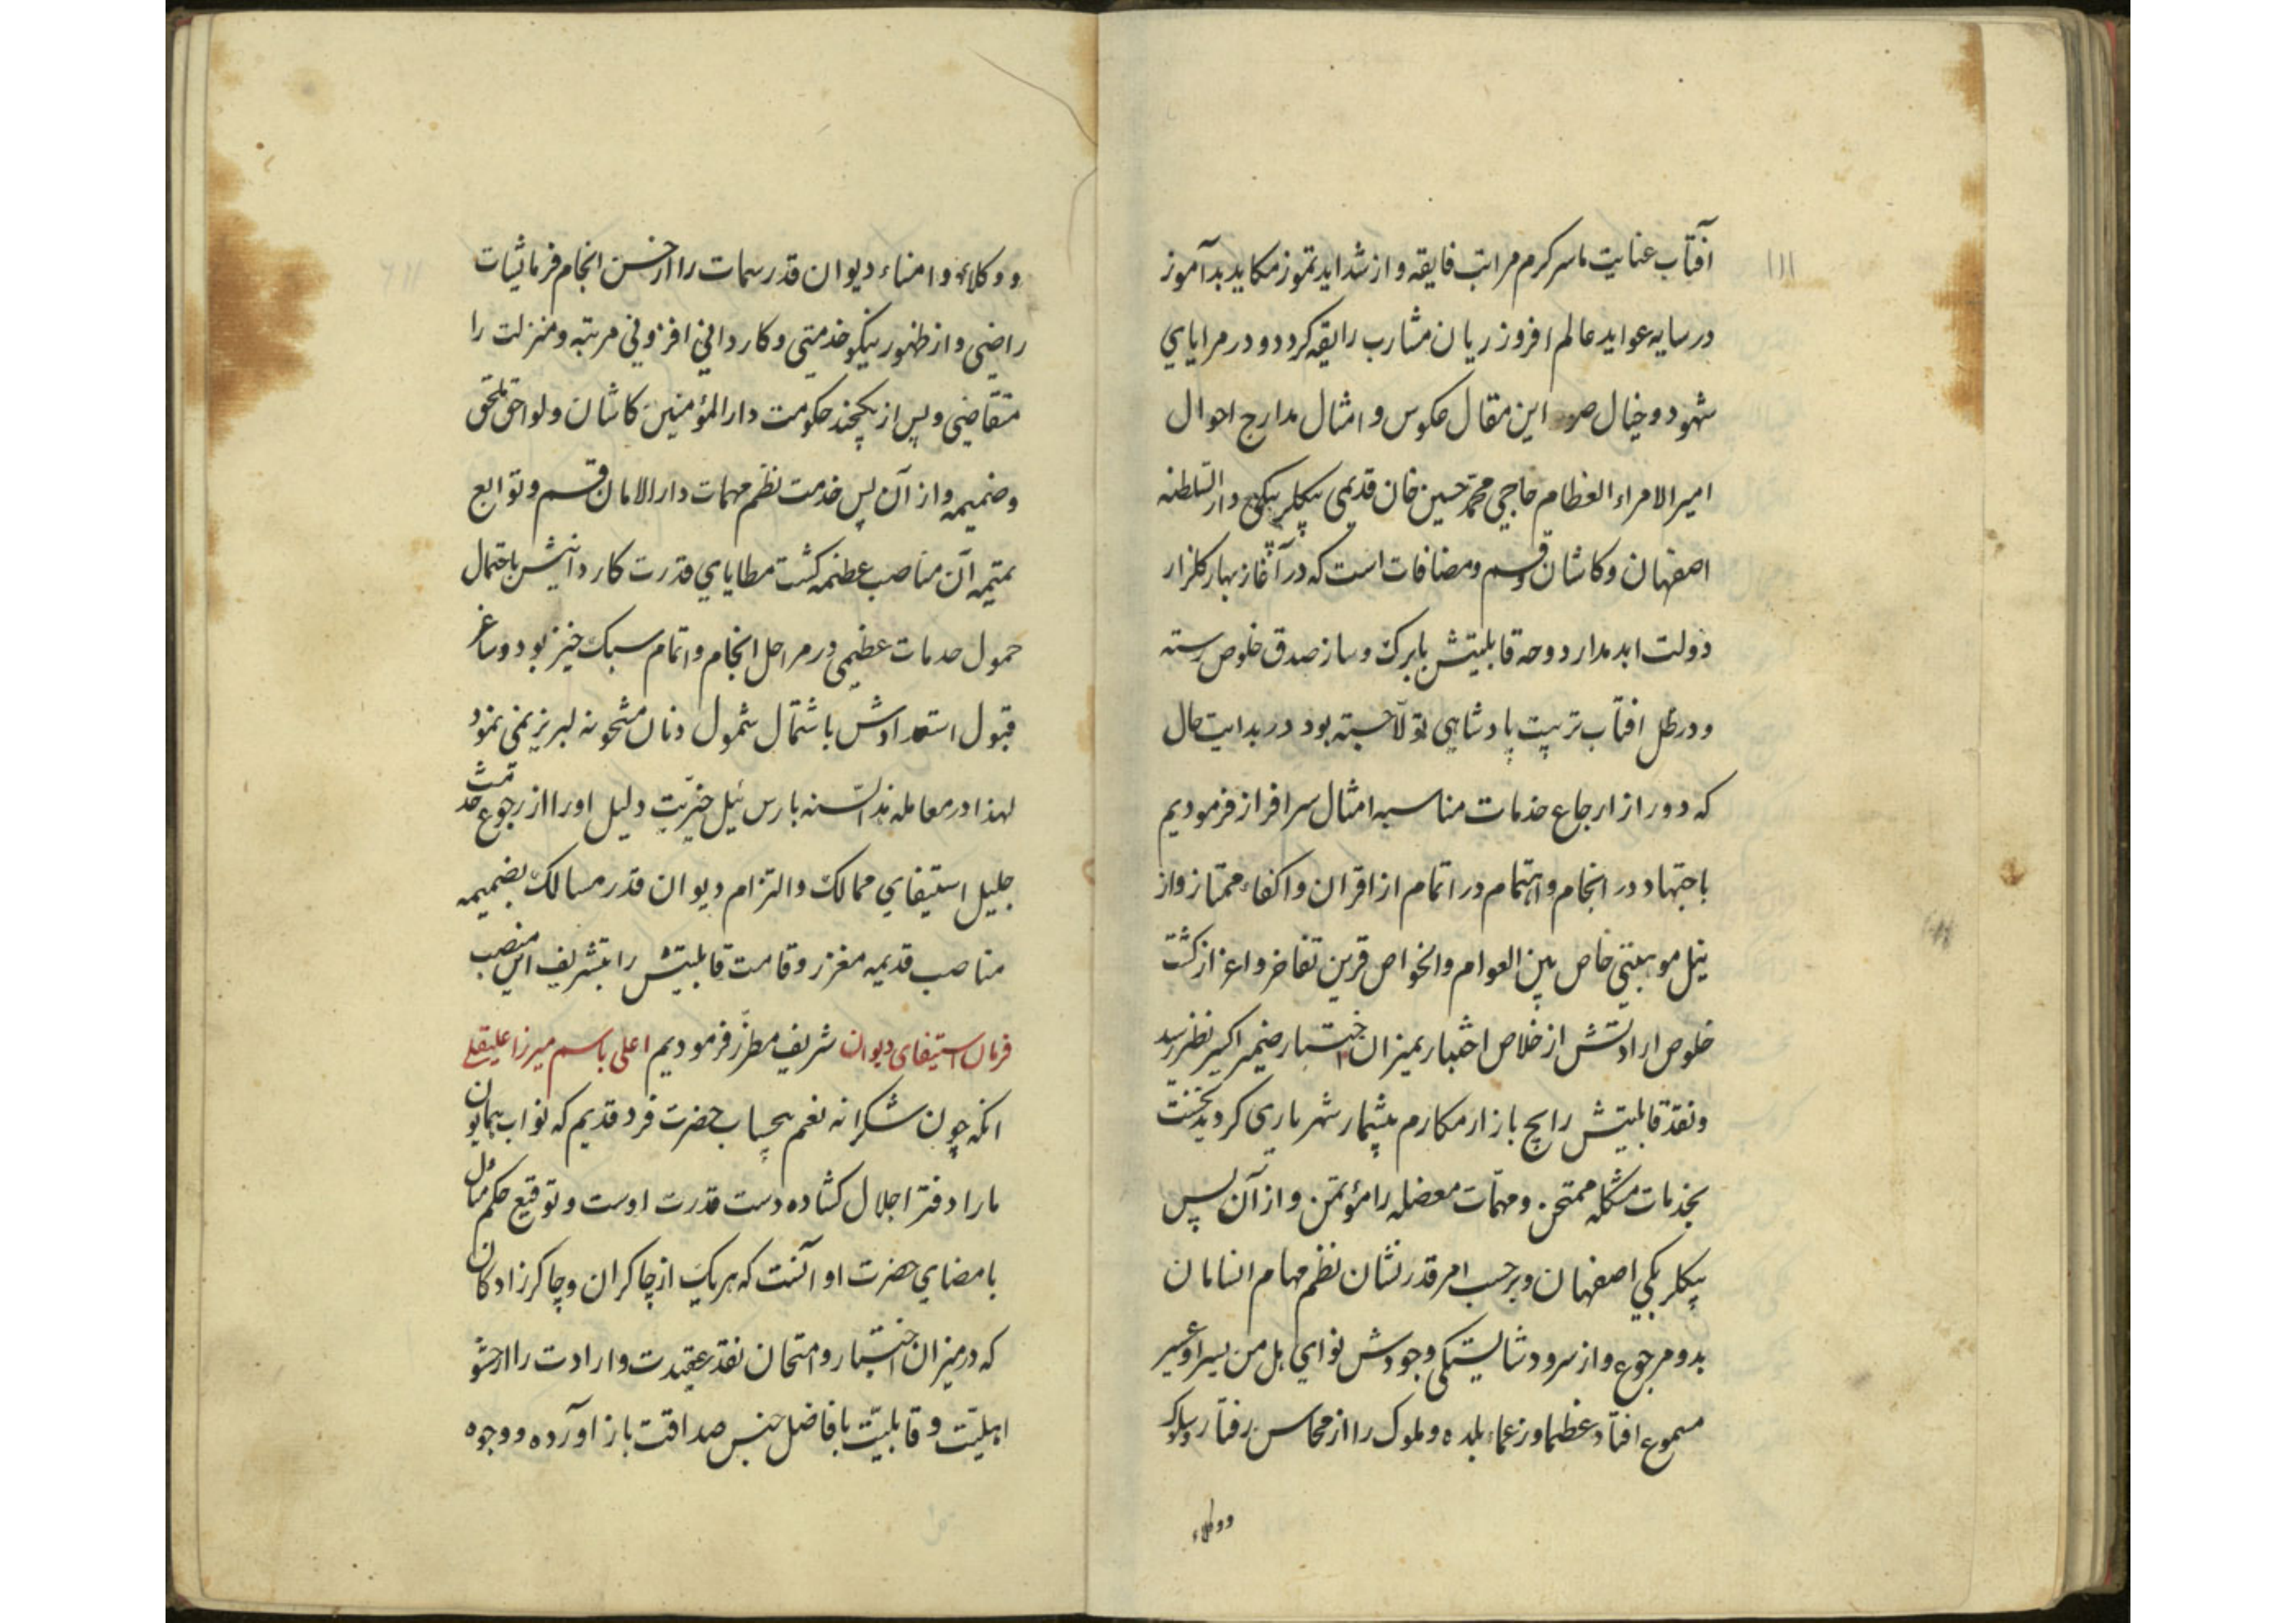 ۱۱۱
آفتاب عنایت ما سرکرم مراتب فایقه و از شداید تموز مکاید بدآموز
در سایه عواید عالم افروز ریان مشارب رایقه کردد و در مرایای
شهود و خیال صور این مقال عکوس و امثال مدارج احوال
امیر الامراء العظام حاجی محمد حسین خان قدیمی بیکلربیکی دار السلطنه
اصفهان و کاشان و قم و مضافات است که در آغاز بهار کلزار
دولت ابد مدار دوحه قابلیتش با برک و ساز صدق خلوص رسته
و در ظل افتاب تربیت پادشاهی تولا جسته بود در بدایت حال
که دور از ارجاع خدمات مناسبه امثال سرافراز فرمودیم
باجتهاد در انجام و اهتمام در اتمام از اقران و اکفاء ممتاز و از
نیل موهبتی خاص بین العوام والخواص قرین تفاخر و اعزاز کشت
خلوص ارادتش از خلاص اختبار بمیزان اختبار ضمیر اکسیر نظر رسید
و نقد قابلیتش رایج بازار مکارم بیشمار شهریاری کردید نخست
بخدمات مشکله ممتحن و مهمات معضله را مؤتمن و از آن پس
بیکلربیکی اصفهان و بر حسب امر قدر نشان نظم مهام انسامان
بدو مرجوع و از سرود شایستکی وجودش نوای بل من یسیر او عسیر
مسموع افتاد عظما و زعماء بلده و ملوک را از محاسن رفتار و سلوک
و وکلاء
و وکلاء و امناء دیوان قدر سمات را از حسن انجام فرمایشات
راضی و از ظهور نیکو خدمتی و کاردانی افزونی مرتبه و منزلت را
متقاضی و پس از یکچند حکومت دار المؤمنین کاشان و لواحق ملحق
و ضمیمه و از آن پس خدمت نظم مهمات دار الامان قم و توابع
متیمه آن مناصب عظیمه کشت مطایای قدرت کاردانیش باحتمال
حمول خدمات عظیمی در مراحل انجام و اتمام سبک خیز بود و ساغر
قبول استعدادش باشتمال شمول دنان مشحونه لبریز نمی نمود
لهذا در معامله هذه السنه بارس ئیل خیریت دلیل او را از رجوع خدمت
جلیل استیفای ممالک و التزام دیوان قدر مسالک بضمیمه
مناصب قدیمه معزز و قامت قابلیتش را بتشریف این منصب
فرمان استیفای دیوان شریف مطرز فرمودیم اعلی باسم میرزا علیقلی
انکه چون شکرانه نعم بیحساب حضرت فرد قدیم که نواب همایون
ما را دفتر اجلال کشاده دست قدرت اوست و توقیع حکم مثال
بامضای حضرت او آنست که هر یک از چاکران و چاکر زادکان
که در میزان اختبار و امتحان نقد عقیدت و ارادت را از حشو
اهلیت و قابلیت بافاضل جنس صداقت باز آورده و وجوه